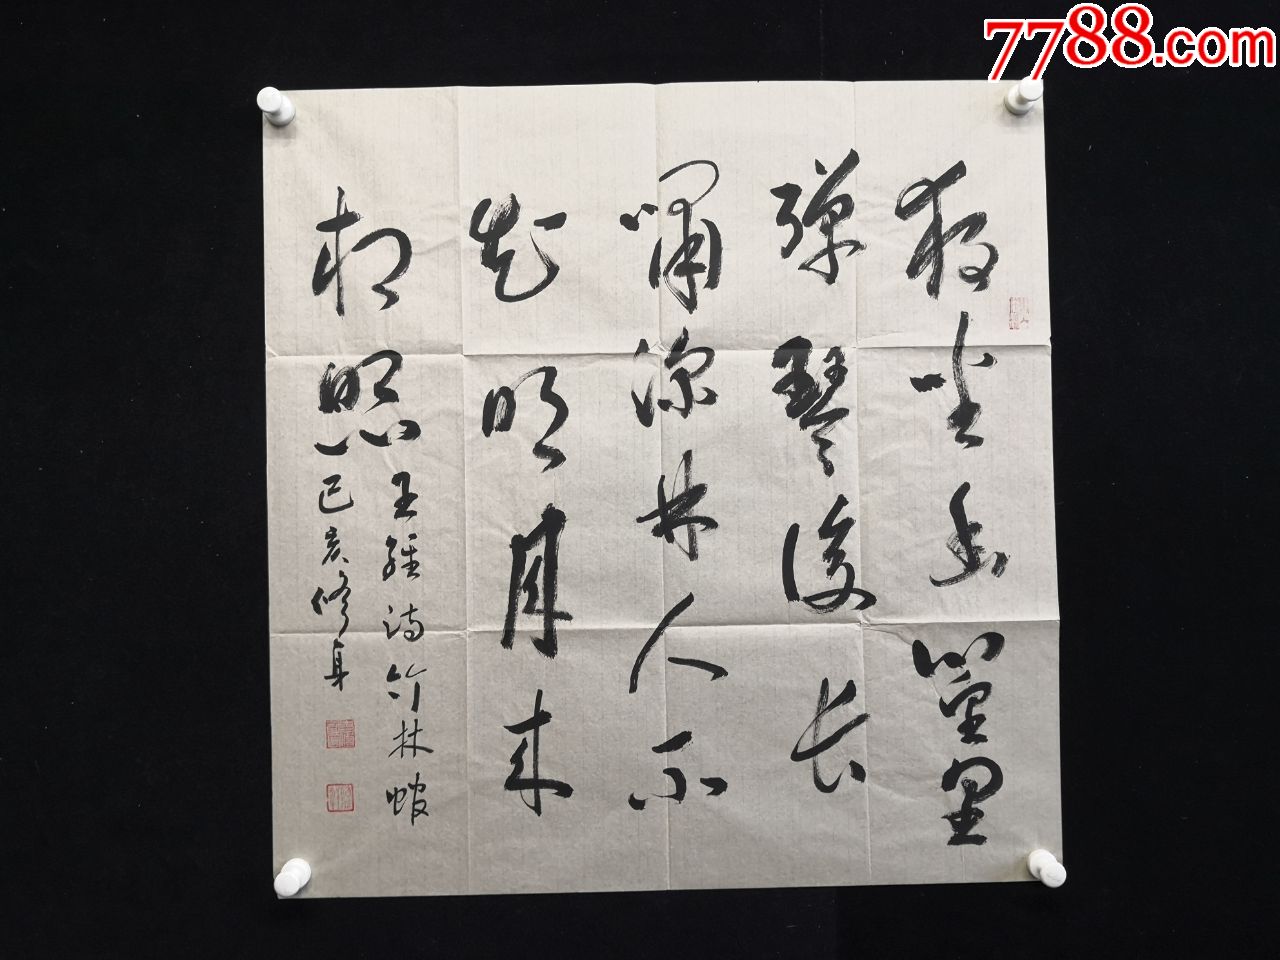 独坐幽篁里
弹琴復长
啸深林人不
知明月来
相照
王维诗竹林馆
己亥修身
7788.com